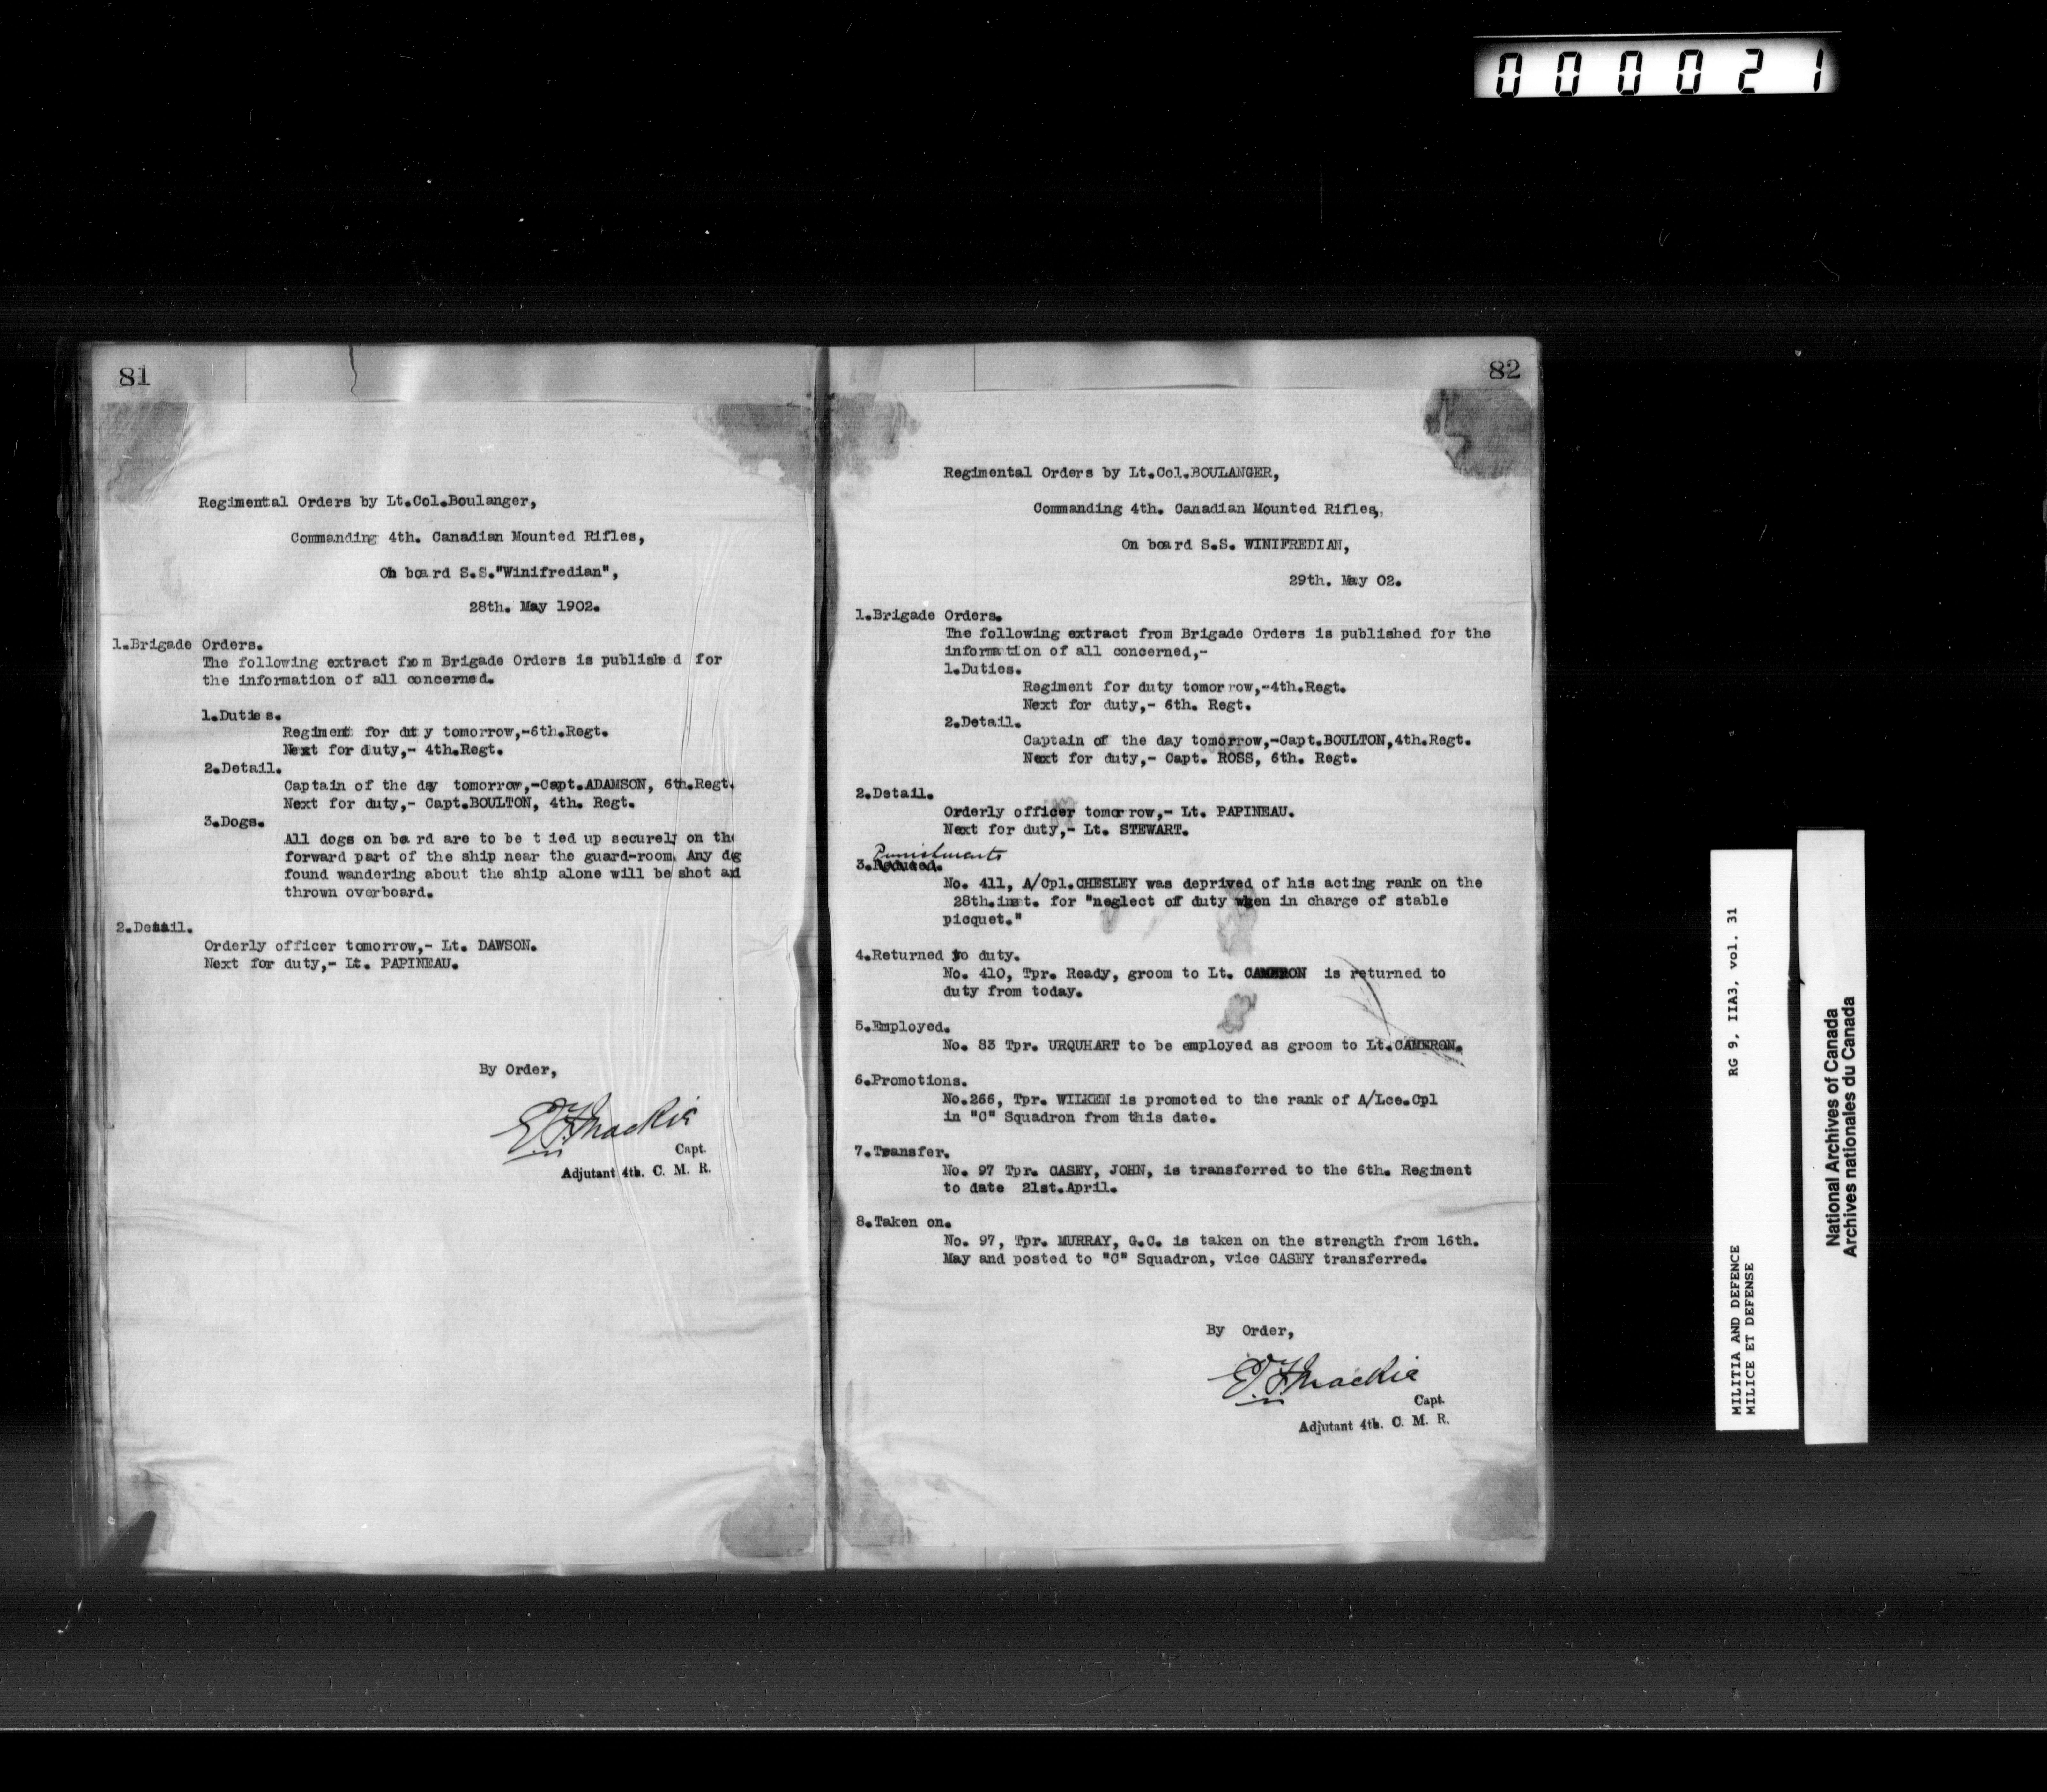 000021
81
Regimental Orders by Lt.Col.Boulanger,
Commanding 4th. Canadian Mounted Rifles,
On board S.S."Winifredian",
28th. May 1902.
1.Brigade Orders.
The following extract from Brigade Orders is published for
the information of all concerned.
1.Duties.
Regiment for duty tomorrow,-6th.Regt.
Next for duty,- 4th.Regt.
2.Detail.
Captain of the day tomorrow,-Capt.ADAMSON, 6th.Regt.
Next for duty,- Capt.BOULTON, 4th. Regt.
3.Dogs.
All dogs on board are to be tied up securely on the
forward part of the ship near the guard-room. Any dog
found wandering about the ship alone will be shot and
thrown overboard.
2.Detail.
Orderly officer tomorrow,- Lt. DAWSON.
Next for duty,- Lt. PAPINEAU.
By Order,
E.F.Mackie
Capt.
Adjutant 4th. C. M. R.
82
Regimental Orders by Lt.Col.BOULANGER,
Commanding 4th. Canadian Mounted Rifles,
On board S.S. WINIFREDIAN,
29th. May 02.
1.Brigade Orders.
The following extract from Brigade Orders is published for the
information of all concerned,-
1.Duties.
Regiment for duty tomorrow,-4th.Regt.
Next for duty,- 6th. Regt.
2.Detail.
Captain of the day tomorrow,-Capt.BOULTON,4th.Regt.
Next for duty,- Capt. ROSS, 6th. Regt.
2.Detail.
Orderly officer tomorrow,- Lt. PAPINEAU.
Next for duty,- Lt. STEWART.
Punishments
3.Reduced.
No. 411, A/Cpl.CHESLEY was deprived of his acting rank on the
28th.inst. for "neglect of duty when in charge of stable
picquet."
4.Returned to duty.
No. 410, Tpr. Ready, groom to Lt. CAMERON is returned to
duty from today.
5.Employed.
No. 83 Tpr. URQUHART to be employed as groom to Lt.CAMERON.
6.Promotions.
No.266, Tpr. WILKEN is promoted to the rank of A/Lce.Cpl
in "C" Squadron from this date.
7.Transfer.
No. 97 Tpr. CASEY, JOHN, is transferred to the 6th. Regiment
to date 21st.April.
8.Taken on.
No. 97, Tpr. MURRAY, G.C. is taken on the strength from 16th.
May and posted to "C" Squadron, vice CASEY transferred.
By Order,
E.F.Mackie
Capt.
Adjutant 4th. C. M. R.
MILITIA AND DEFENCE RG 9, IIA3, vol. 31
MILICE ET DEFENSE
National Archives of Canada
Archives nationales du Canada